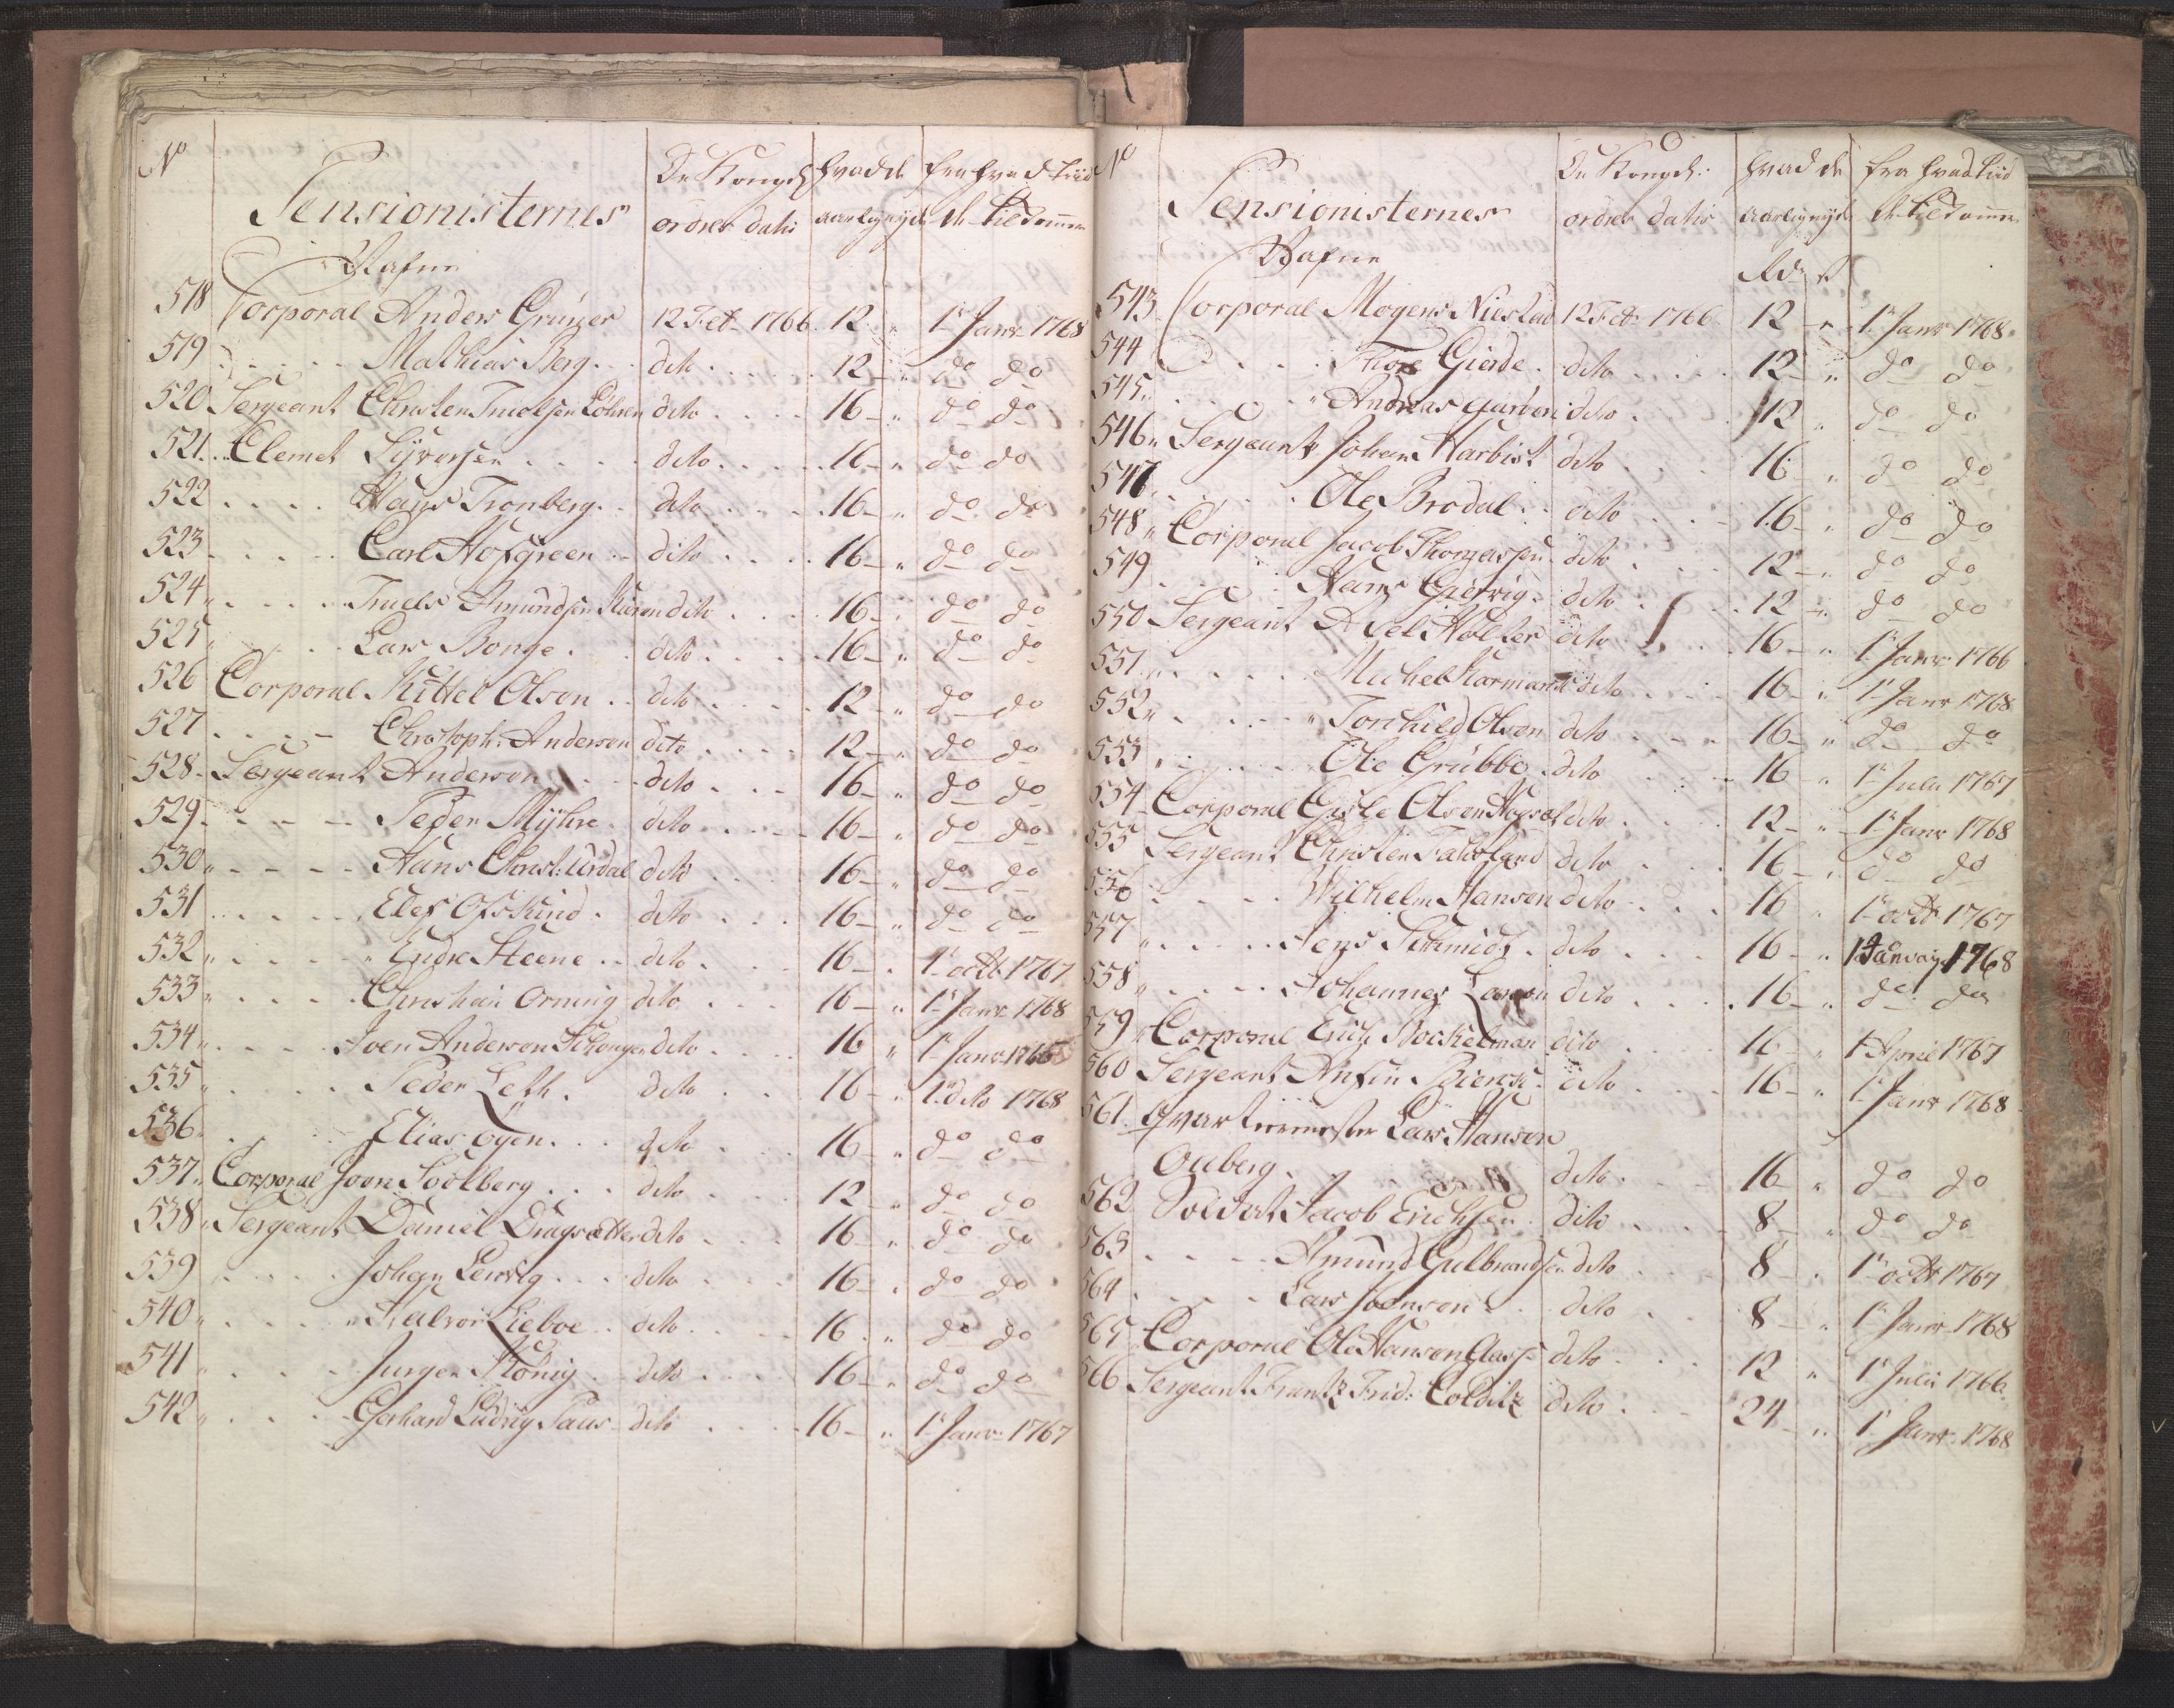 No Pensionisternes De Kongel: hvad de fra hvad tiid
Nafne ordres datis aarlig nyde de tilkommer
518 Corporal Anders Grüner 12 Feb. 1766. 12 - " 1. Janr 1768
519 . . . . Mathias Berg . . dito . . . . 12 - " do do
520 Sergeant Christen Truelsen dito . . . 16 - " do do
521. " Clemet Syversen . . . . dito . . . . 16 - " do do
522 . . . . Hans Tronberg . . dito . . . . 16 - " do do
523 . . . . Carl Hofgreen . . dito . . . . 16 - " do do
524 " . . . . Truels Amundsen dito . . . 16 - " do do
525 " . . . . Lars Bonge . . dito . . . . 16 - " do do
526 Corporal Kittel Olsen . . dito . . . . 12 - " do do
527 . . . . Christoph: Andersen dito . . . . 12 - " do do
528 - Sergeant Andersen . . . dito . . . 16 - " do do
529 - - - - Peder Myhre . dito . . . . 16 - " do do
530 " - - - - Hans Christ: Urdal dito . . . 16 - " do do
531 . . . . . Elef Ofskind . dito . . . . 16 - " do do
532 " . . . . " Endre Steene . . dito . . . 16 - " 1. octb 1767
533 " . . . . Christian Orning dito . . . 16 - " 1. Janr 1768
534 " . . . . Iver Andersen dito . . . . 16 " 1. Janr 1766
535 " . . . . Peder Leth . dito . . . 16 - " 1. dito 1768
536 " . . . . Elias Øyen . . . dito . . . 16 - " do do
537 " Corporal Joen Soelberg . . . dito . . . 12 - " do do
538 " Sergeant Daniel Dragsætter dito . . . 16 - " do do
539 . . . . Johan Ledvig . . . dito . . . . 16 - " do do
540 " . . . . " Halvor Lieboe . . dito . . . . 16 . " do do
541 " . . . . Jürgen König . . dito . . . . 16 - " do do
542 " . . . . Gerhard Ludvig Paus - dito . . . . 16 - " 1. Janr 1767
No Pensionisternes De Kongel: hvad de fra hvad tiid
Nafne ordres datis aarlig nyde de tilkommer
Rdr s
543 Corporal Mogens 12 Feb 1766 12 - " 1. Janr 1768
544 . . . . Thore Gierde . dito . . . . 12 - " do do
545 " . . . . " Andreas dito . 12 " do do
546 " Sergeant Johan Harbist dito . . . 16 " do do
547 " . . . . Ole Brodal . . dito . . . 16 - " do do
548 " Corporal Jacob Thomassen dito . . . 12 - " do do
549 . . . . Hans Giervig . dito . . . 12 - " do do
550 Sergeant Axel Holter dito . . . 16 - " 1. Janr 1766
551. " . . . . Michel dito . . . . 16 - " 1. Janr 1768
552 " . . . . " Torchild Olsen dito . . . . 16 - " do do
553 " . . . . Ole Grübbe . dito . . . . 16 " 1. Julii 1767
554 - Corporal Gisle Olsen dito . . . . 12 - " 1. Janr 1768
555 Sergeant Christen dito . . . 16 - " do do
556 " . . . . Wilhelm Hansen dito . . . 16 " 1. octb 1767
557 " . . . . Jens Schmidt . dito . . . 16 - " 1 Januarj 1768
558 " . . . . Johannes Larsen dito . . . . 16 - " do do
559 " Corporal Erich Bockelman dito . . . 16 - " 1. April 1767
560 Sergeant Anfin dito . . . 16 - " 1. Janr 1768
561. Qvarteermester Lars Hansen
Ouberg . dito . . . 16 " do do
562 Soldat Jacob Erichsen . dito . . . 8 - " do do
563 . . . . Amund Gulbrandsen dito . . . 8 - " 1. octb 1767
564 . . . . Lars Joensen . . dito . . 8 - " 1. Janr 1768
565 " Corporal Ole Hansen dito . . . 12 " 1. Julii 1766.
566 Sergeant Frantz Frid: Colditz dito . . - 24 - " 1. Janr 1768